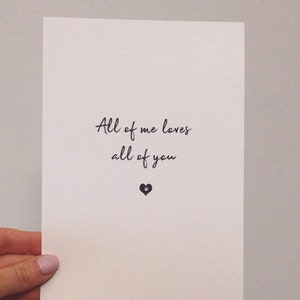 All of me loves
all of you